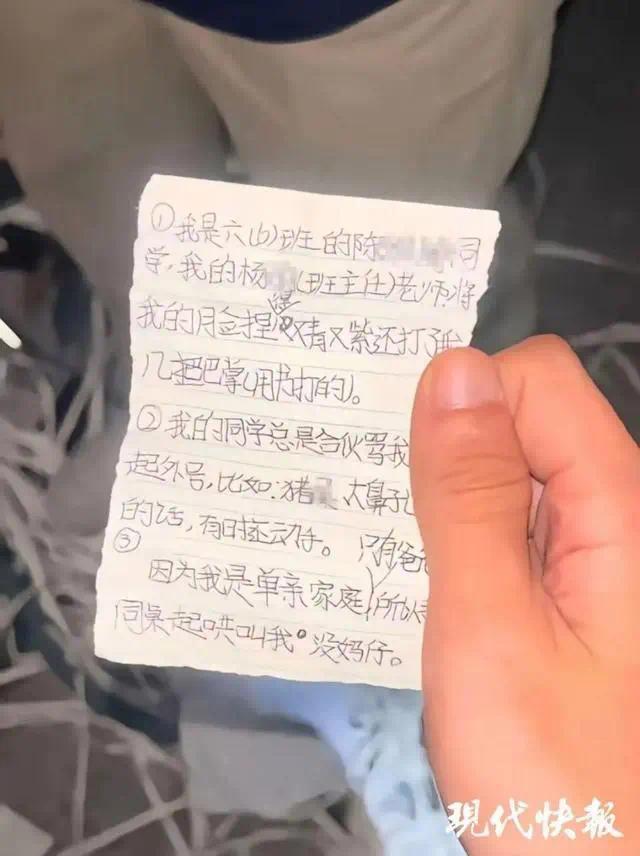 ①我是六(6)班的陈 同
学,我的杨 (班主任)老师将
我的脸捏得又青又紫还打了我
几把巴掌(用书打的)。
②我的同学总是合伙骂我
起外号,比如:猪 大鼻孔
的话,有时还动手。 只有爸爸
③
因为我是单亲家庭,所以
同桌起哄叫我 没妈仔。
现代快报